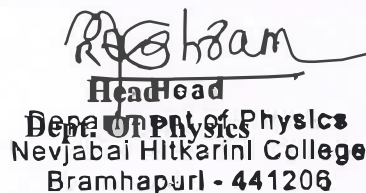 Head Head
Department of Physics
Dept. Of Physics
Nevjabai Hitkarini College
Bramhapuri - 441206